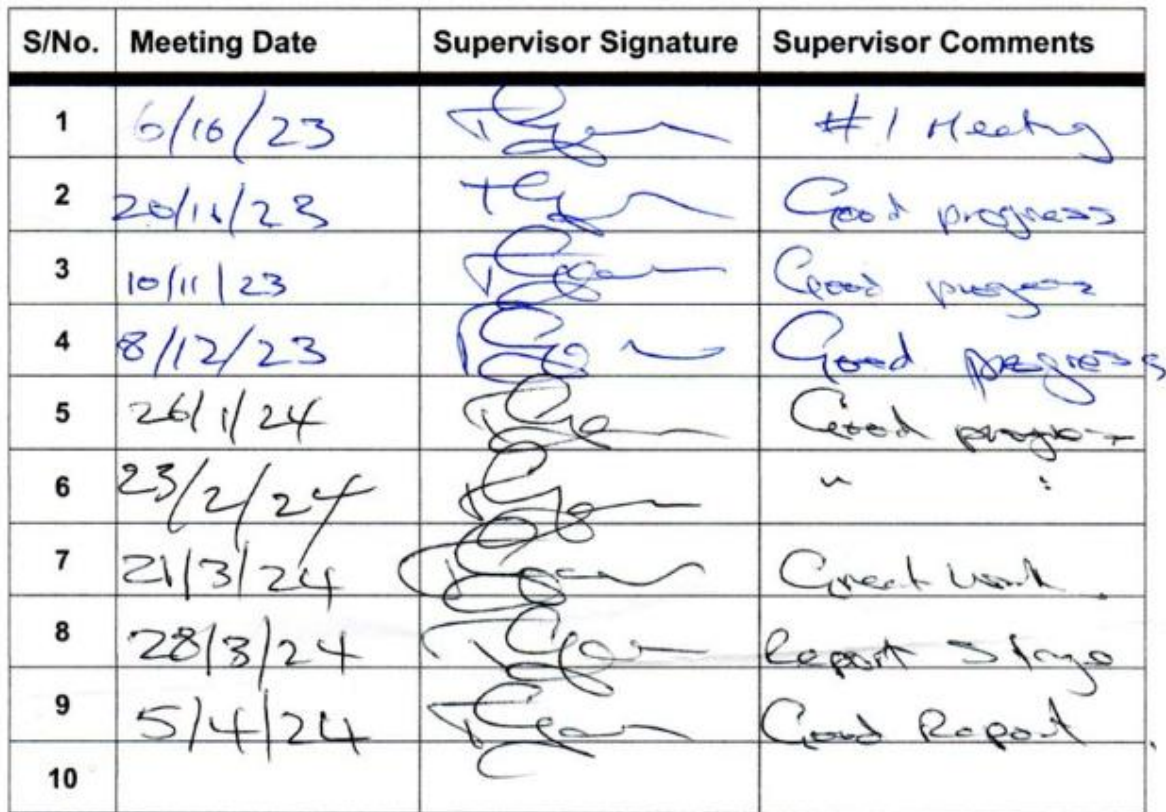 S/No. Meeting Date Supervisor Signature Supervisor Comments
1 6/10/23 #1 Meeting
2 20/11/23 Good progress
3 10/11/23 Good progress
4 8/12/23 Good progress
5 26/1/24 Good progress
6 23/2/24 " "
7 21/3/24 Great work.
8 28/3/24 Report Stage
9 5/4/24 Good Report.
10